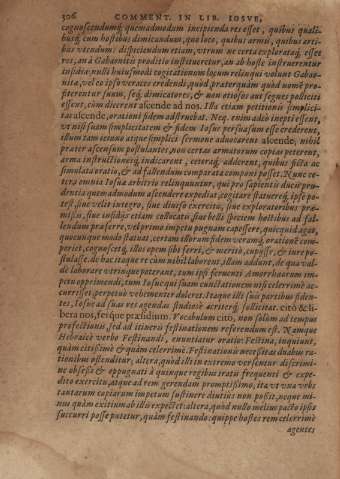 306 COMMENT. IN LIB. IOSVE,
cognoscendumq́; quemadmodum incipienda res esset, quibus quali-
busq́; cum hostibus dimicandum, quo loco, quibus armis, quibus arti-
bus vtendum: dispiciendum etiam, vtrum ne certa explorataq́; esset
res, an à Gabaonitis proditio institueretur, an ab hoste instruerentur
insidiæ: nulli huiusmodi cogitationum locum relinqui volunt Gabao-
nitæ, vel eo ipso veraces credendi, quod præterquàm quòd nunc præ-
piterentur suum, seq́; dimicatores, & non otiosos aut segnes pollicití
essent, cùm dicerent ascende ad nos. Illa etiam petitionis simplici-
tas ascende, orationi fidem adstruebat. Neq. enim adeò inepti essent,
vt nisi suam simplicitatem & fidem Iosue persuasum esse crederent,
illum tam ieiuno atque simplici sermone aduocarent ascende, nihil
præter ascensum postulantes, non certas armatorum copias peterent,
arma instructioneq́; indicarent, ceteraq́; adderent, quibus ficta ac
simulata oratio, & ad fallendum comparata componi posset. Nunc ve-
rò omnia Iosuæ arbitrio relinquuntur, qui pro sapientis ducis pru-
dentia quemadmodum ascendere expediat, cogitare statuereq́; ipse po-
test, siue velit integro, siue diuiso exercitu, siue exploratoribus præ-
missis, siue insidijs etiam collocatis, siue belli speciem hostibus ad fal-
lendum præferre, vel primo impetu pugnam capessere, quicquid agat,
quocunque modo statuat, certam illorum fidem veramq́; orationē com-
periet, cognoscetq́; illis opem sibi ferri, & meritò, cupisse, & iure po-
stulasse. de hac itaque re cùm nihil laborent, illam addunt, de qua val-
dè laborare vtrinque poterant, eum ipsi feruenti Amorrhæorum im-
petu opprimendi, tum Iosue qui suam cunctationem nisi celerrimè ac-
currisset, perpetuò vehementer doleret. Itaque illi suis partibus fiden-
tes, Iosue ad suas res agendas studiosè acriterq́; sollicitat. citò & li-
bera nos, ferq́ue præsidium. Vocabulum citò, non solùm ad tempus
profectionis, sed ad itineris festinationem referendum est. Namque
Hebraicè verbo Festinandi, enuntiatur oratio: Festina, inquiunt,
quàm citissimè & quàm celerrimè. Festinationis necessitas duabus ra-
tionibus ostenditur, altera, quòd illi in extremo versentur discrimi-
ne obsessi & oppugnati à quinque regibus iratis frequenti & expe-
dito exercitu, atque ad rem gerendam promptissimo, ita vt vna vrbs
tantarum copiarum impetum sustinere diutius non possit, neque mi-
nus quàm exitium ab illis expectet: altera, quòd nullo melius pacto ipsis
succurri posse putetur, quàm festinando: quippe hostes rem celerrimè
agentes